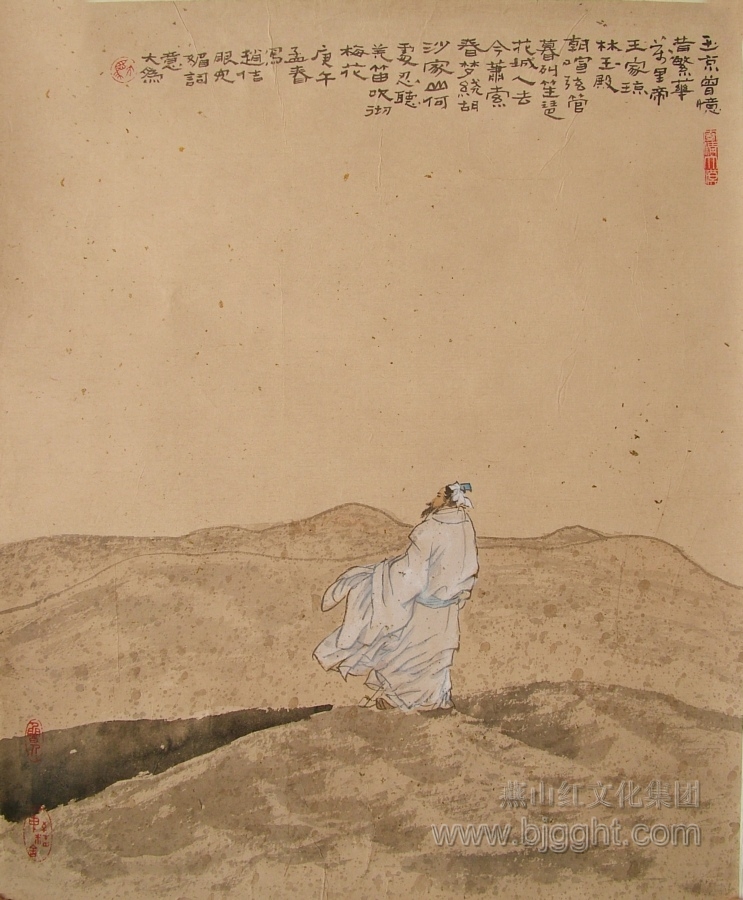 玉京曾憶
昔繁華
萬里帝
王家瓊
林玉殿
朝喧弦管
暮列笙琶
花城人去
今蕭索
春梦繞胡
沙家山何
處忍聽
羌笛吹彻
梅花
庚午
孟春
寫
趙佶
眼兒
媚詞
意
大為
燕山红文化集团
www.bjgght.com